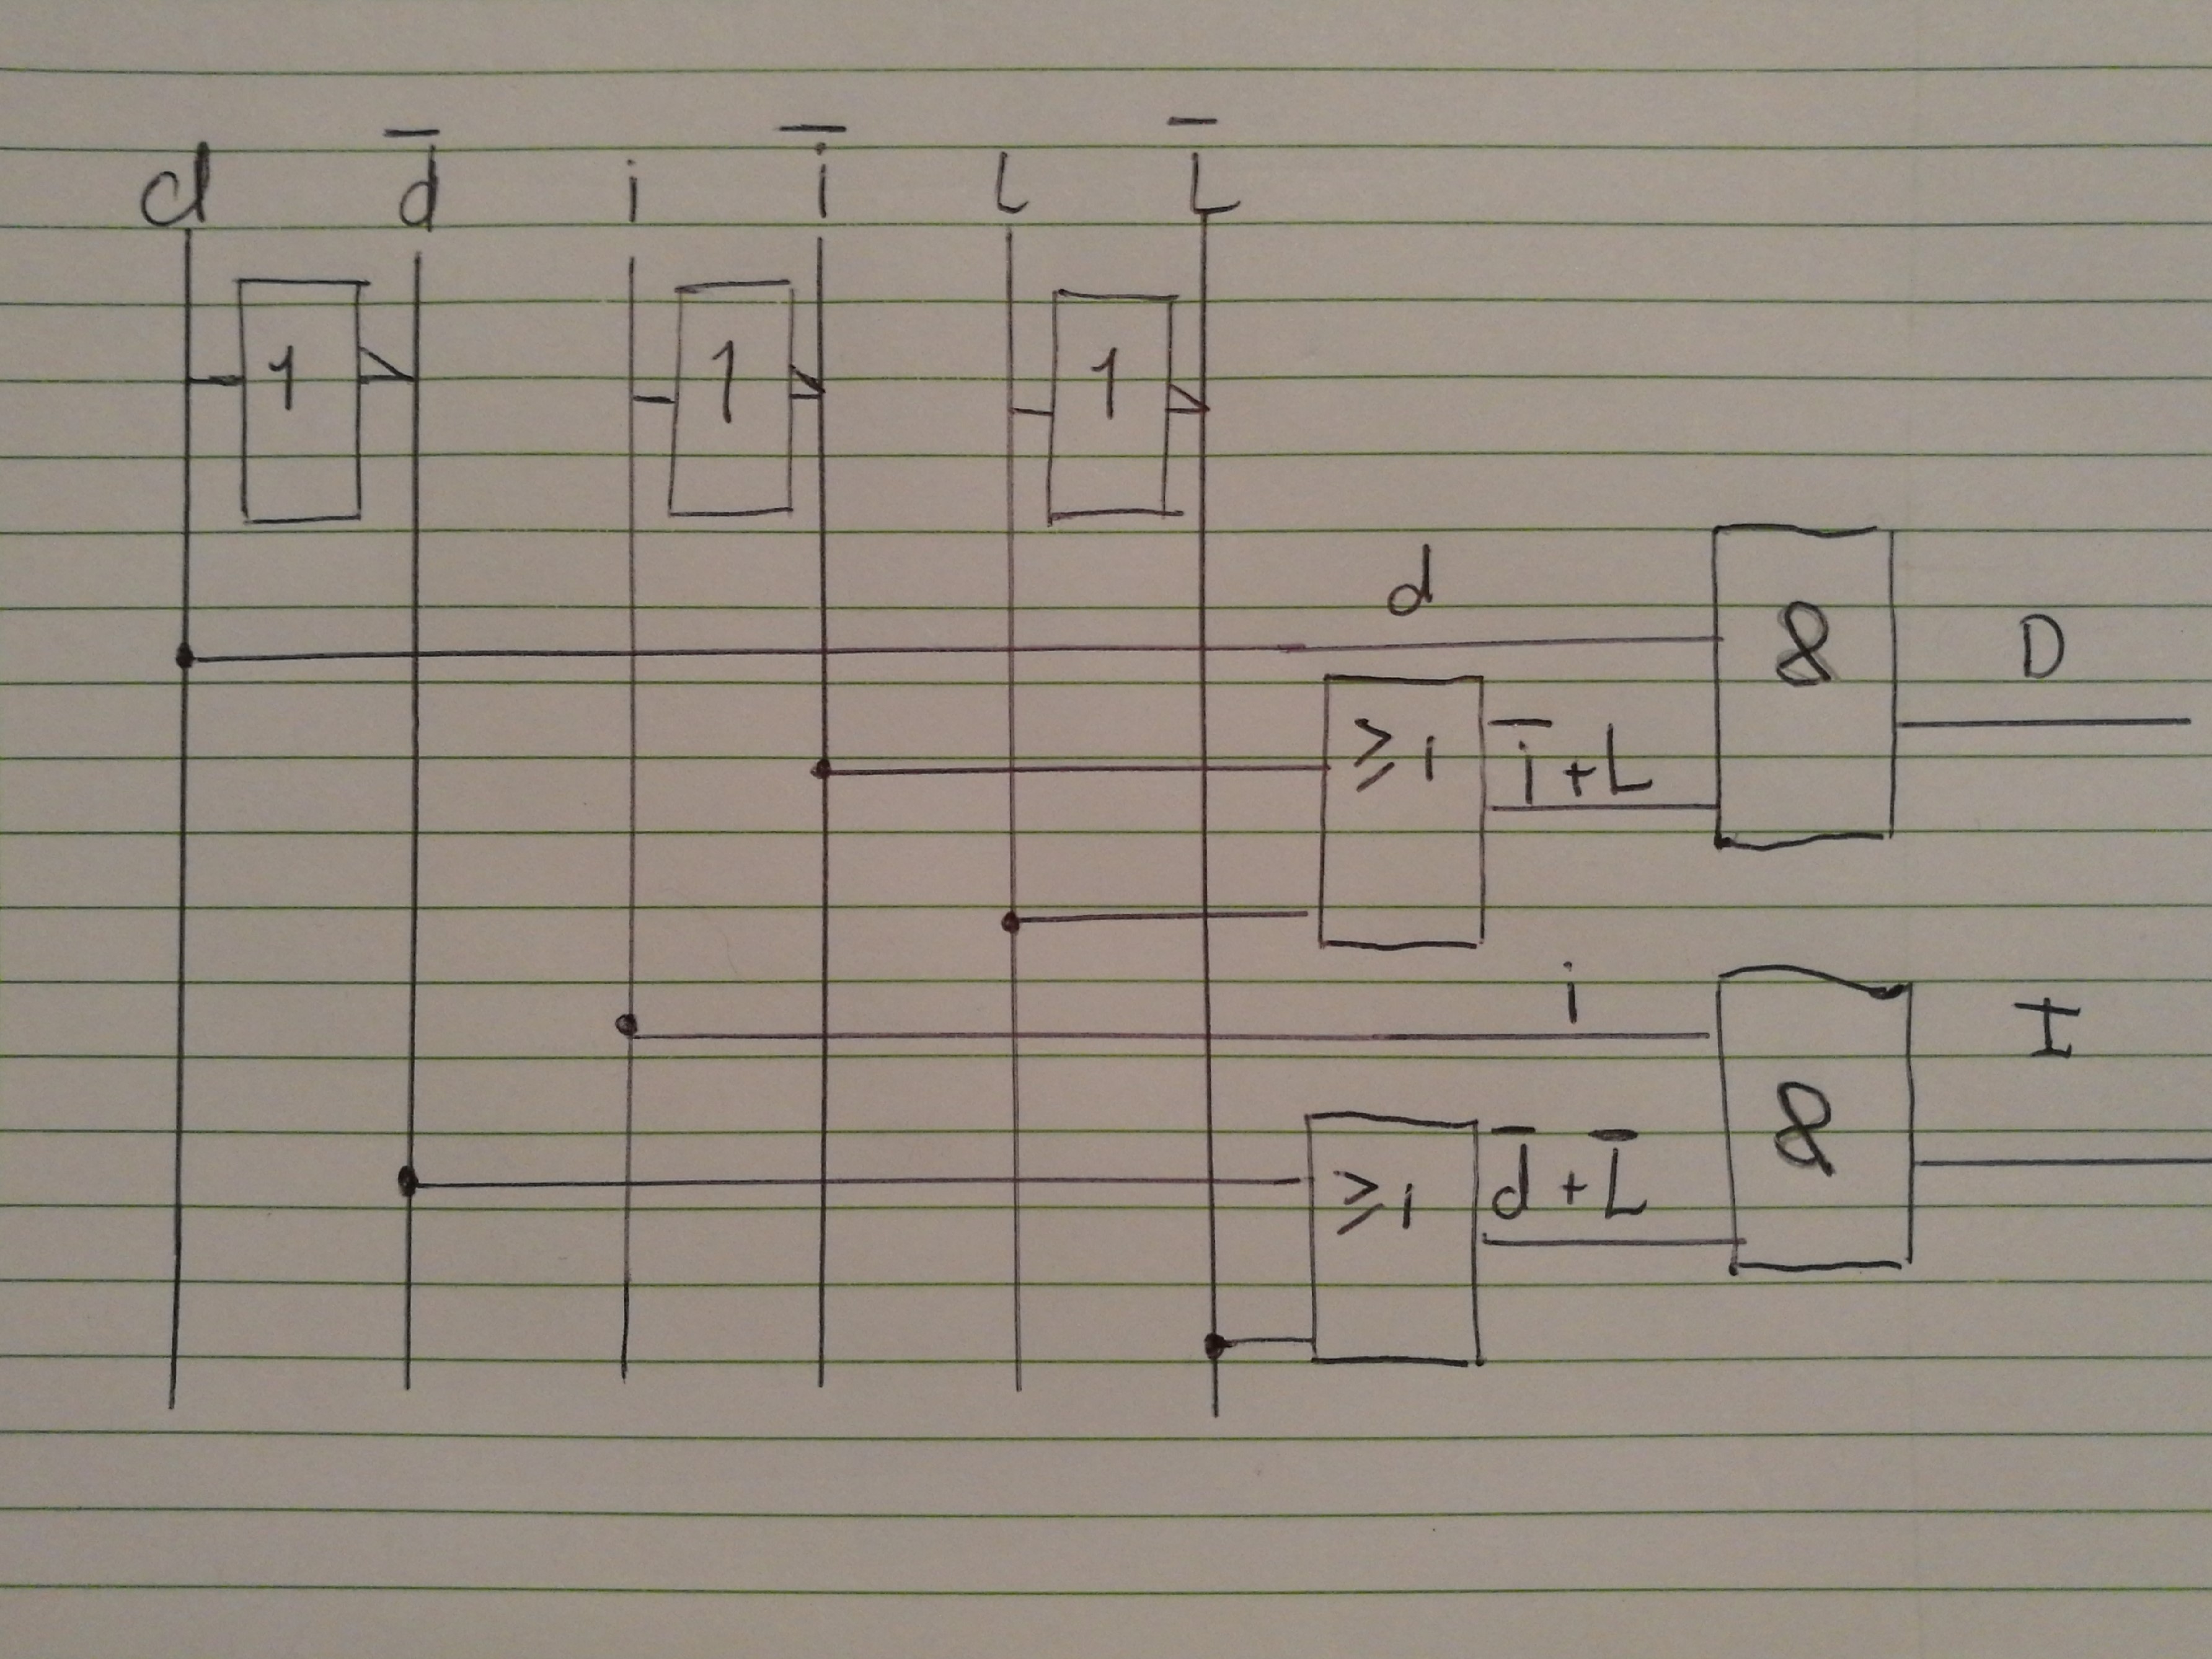 d d̅ i i̅ L L̅
1 1 1
d
&
D
≥1
i̅+L
i
&
I
≥1
d̅+L̅